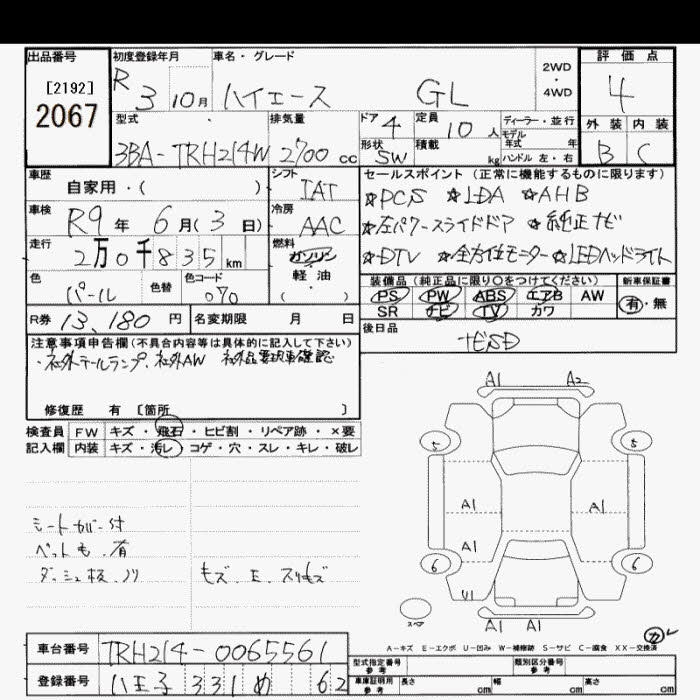 出品番号
[2192]
2067
初度登録年月
R 3 10月
車名・グレード
ハイエース GL
2WD
・
4WD
評価点
4
外装 内装
B C
型式
3BA-TRH214W
排気量
2700 cc
ドア 4
形状 SW
定員 10 人
積載 kg
ディーラー・並行
モデル
年式 年
ハンドル 左・右
車歴
自家用・( )
シフト
IAT
車検
R9年 6月(3日)
冷房
AAC
走行
2万0千835km
燃料
ガソリン
軽油
・
( )
色
パール
色替
色コード
070
R券 13,180 円
名変期限 月 日
セールスポイント (正常に機能するものに限ります)
☆PCS ☆LDA ☆AHB
☆左パワースライドドア ☆純正ナビ
☆DTV ☆全方位モニター ☆LEDヘッドライト
装備品(純正品に限り○をつけてください)
PS PW ABS エアB AW
SR ナビ TV カワ
新車保証書
有・無
後日品
ナビSD
注意事項申告欄(不具合内容等は具体的に記入して下さい)
・社外テールランプ、社外AW 社外品要現車確認
修復歴 有 [箇所 ]
検査員 FW キズ・飛石・ヒビ割・リペア跡・×要
記入欄 内装 キズ・汚レ・コゲ・穴・スレ・キレ・破レ
シートカバー付
ベットも、有
ダッシュ板、ノリ
もズ、E、スリもズ
A1 A2
5 5
A1 A1
A1
6 6
U1
スペア
A1 A1
カ
A-キズ E-エクボ U-凹み W-補修跡 S-サビ C-腐食 XX-交換済
車台番号 TRH214-0065561
登録番号 八王子 331 め 62
型式指定番号
参考
類別区分番号
参考
車庫証明用
参考
長さ cm 幅 cm 高さ cm